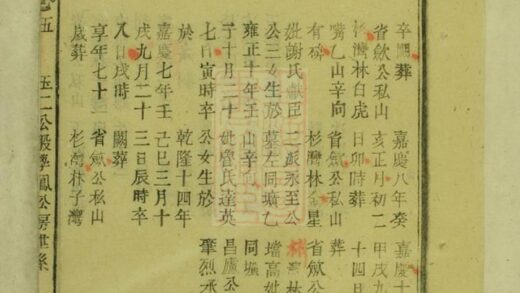 五 玉二公殷學鳳公房世系
卒關葬
省歙公私山
杉灣林白虎
嘴乙山辛向
有碑
妣謝氏獻臣
公三女生於
雍正十年壬
子十月二十
七日寅時卒
於
嘉慶七年壬
戌九月二十
八日戌時
享年七十一
歲葬
嘉慶八年癸
亥正月初二
日卯時葬
省歙公私山
杉灣林金星
墓左同壙乙
山辛向
妣詹氏達英
公女生於
乾隆十四年
己巳三月十
三日辰時卒
關葬
省歙公私山
杉灣林子灣
嘉慶十
甲戌九
十四日
葬
省歙公
灣林
壙高妣
同壙
昌盧公
肇烈承